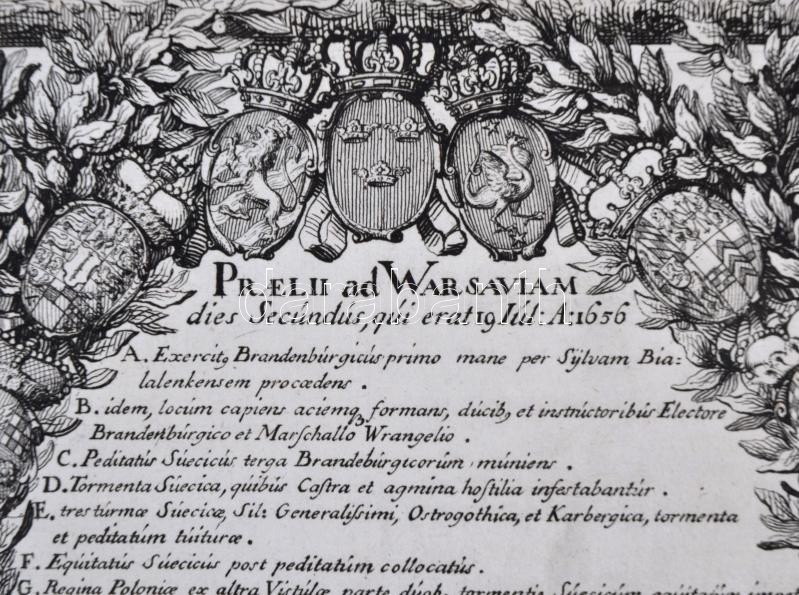 PRÆLII ad WARSAVIAM
dies Secúndús, qui erat 19 Iúl: A: 1656
A. Exercitꝰ Brandenbúrgicús primo mane per Sÿlvam Bia=
lalenkensem procædens.
B. idem, locum capiens aciemqꝫ formans, dúcibꝰ et instrúctoribús Electore
Brandenbúrgico et Marschallo Wrangelio.
C. Peditatús Súecicús terga Brandebúrgicorúm múniens.
D. Tormenta Súecica, qúibús Castra et agmina hostilia infestabantúr.
E. tres túrmæ Súecicæ, Sil: Generalissimi, Ostrogothica, et Karbergica, tormenta
et peditatúm túitúræ.
F. Eqúitatús Súecicús post peditatúm collocatús.
G. Regina Poloniæ ex altra Vistúlæ parte dúobꝰ tormentis Súecicúm eqúitatúm
darabanth